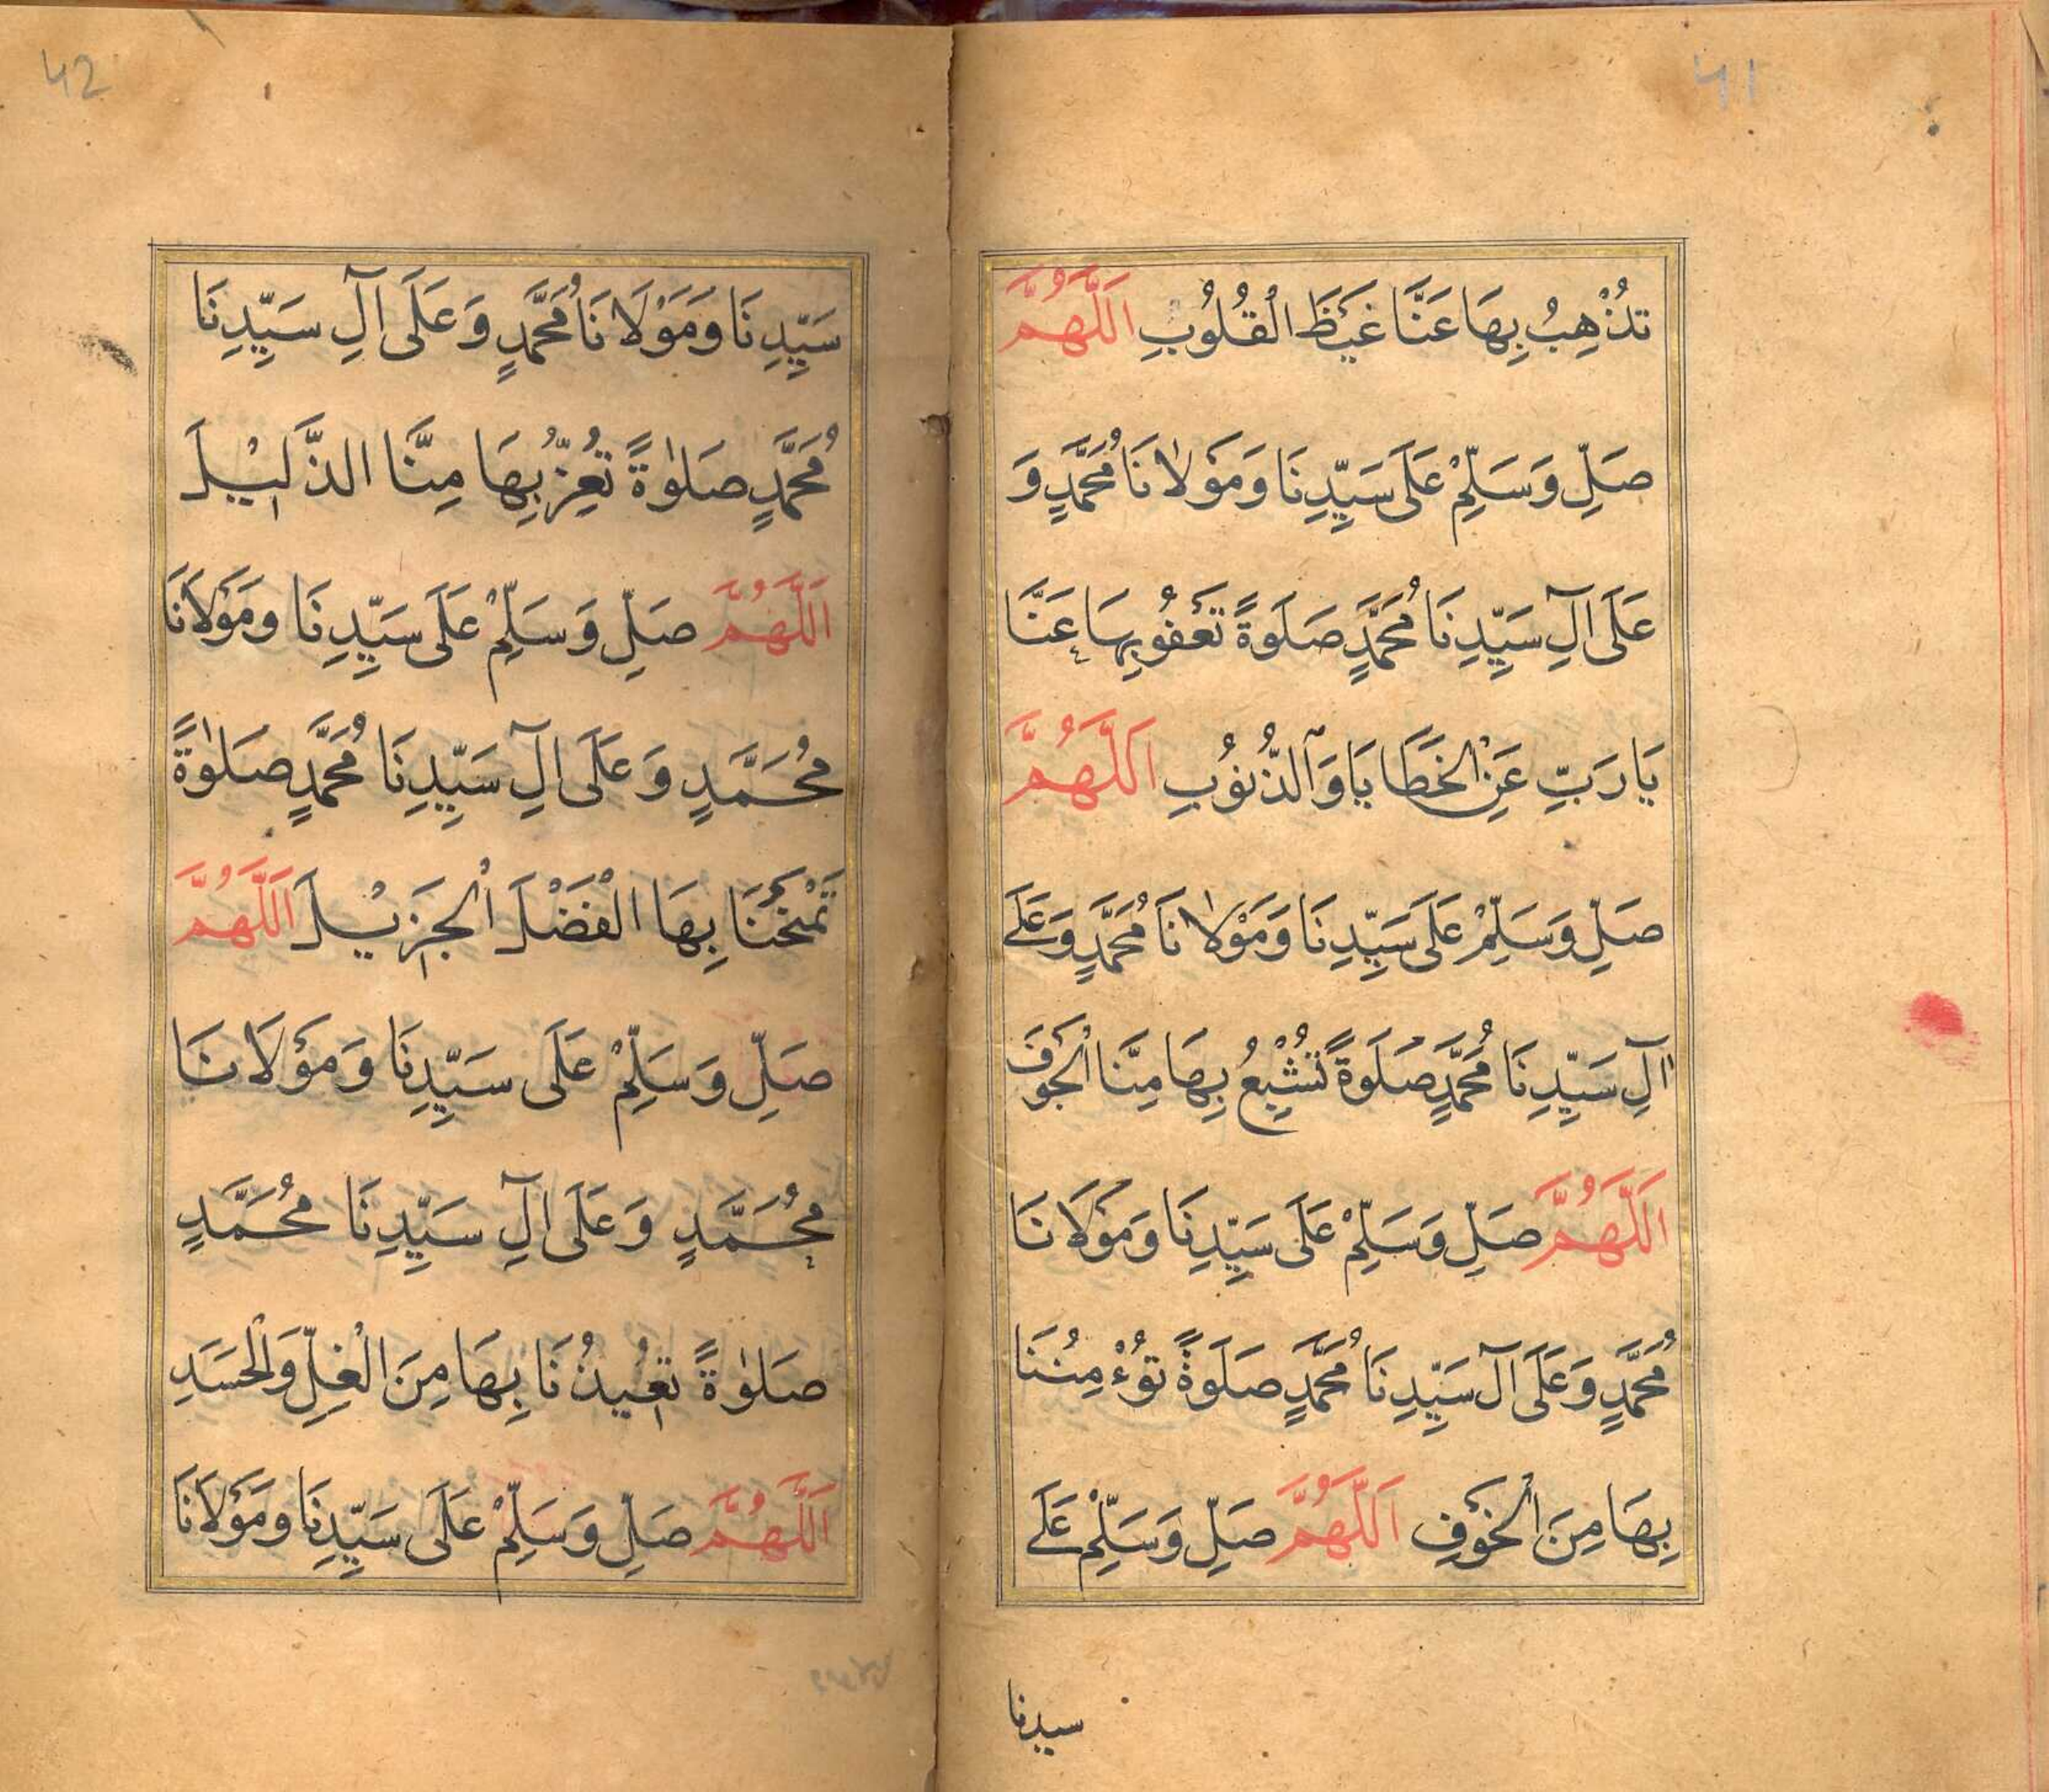 41
تُذْهِبُ بِهَا عَنَّا غَيْظَ الْقُلُوْبِ اَللّٰهُمَّ
صَلِّ وَسَلِّمْ عَلَى سَيِّدِنَا وَمَوْلَانَا مُحَمَّدٍ وَ
عَلَى اٰلِ سَيِّدِنَا مُحَمَّدٍ صَلَوةً تَعْفُوْ بِهَا عَنَّا
يَا رَبِّ عَنِ الْخَطَايَا وَالذُّنُوْبِ اَللّٰهُمَّ
صَلِّ وَسَلِّمْ عَلَى سَيِّدِنَا وَمَوْلَانَا مُحَمَّدٍ وَعَلَى
اٰلِ سَيِّدِنَا مُحَمَّدٍ صَلَوةً تُشْبِعُ بِهَا مِنَّا الْجَوْفَ
اَللّٰهُمَّ صَلِّ وَسَلِّمْ عَلَى سَيِّدِنَا وَمَوْلَانَا
مُحَمَّدٍ وَعَلَى اٰلِ سَيِّدِنَا مُحَمَّدٍ صَلَوةً تُؤْمِنُنَا
بِهَا مِنَ الْخَوْفِ اَللّٰهُمَّ صَلِّ وَسَلِّمْ عَلَى
سيدنا
42
سَيِّدِنَا وَمَوْلَانَا مُحَمَّدٍ وَعَلَى اٰلِ سَيِّدِنَا
مُحَمَّدٍ صَلٰوةً تُعِزُّ بِهَا مِنَّا الذَّلِيْلَ
اَللّٰهُمَّ صَلِّ وَسَلِّمْ عَلَى سَيِّدِنَا وَمَوْلَانَا
مُحَمَّدٍ وَعَلَى اٰلِ سَيِّدِنَا مُحَمَّدٍ صَلٰوةً
تَمْنَحُنَا بِهَا الْفَضْلَ الْجَزِيْلَ اَللّٰهُمَّ
صَلِّ وَسَلِّمْ عَلَى سَيِّدِنَا وَمَوْلَانَا
مُحَمَّدٍ وَعَلَى اٰلِ سَيِّدِنَا مُحَمَّدٍ
صَلٰوةً تُعِيْذُنَا بِهَا مِنَ الْغِلِّ وَالْحَسَدِ
اَللّٰهُمَّ صَلِّ وَسَلِّمْ عَلَى سَيِّدِنَا وَمَوْلَانَا